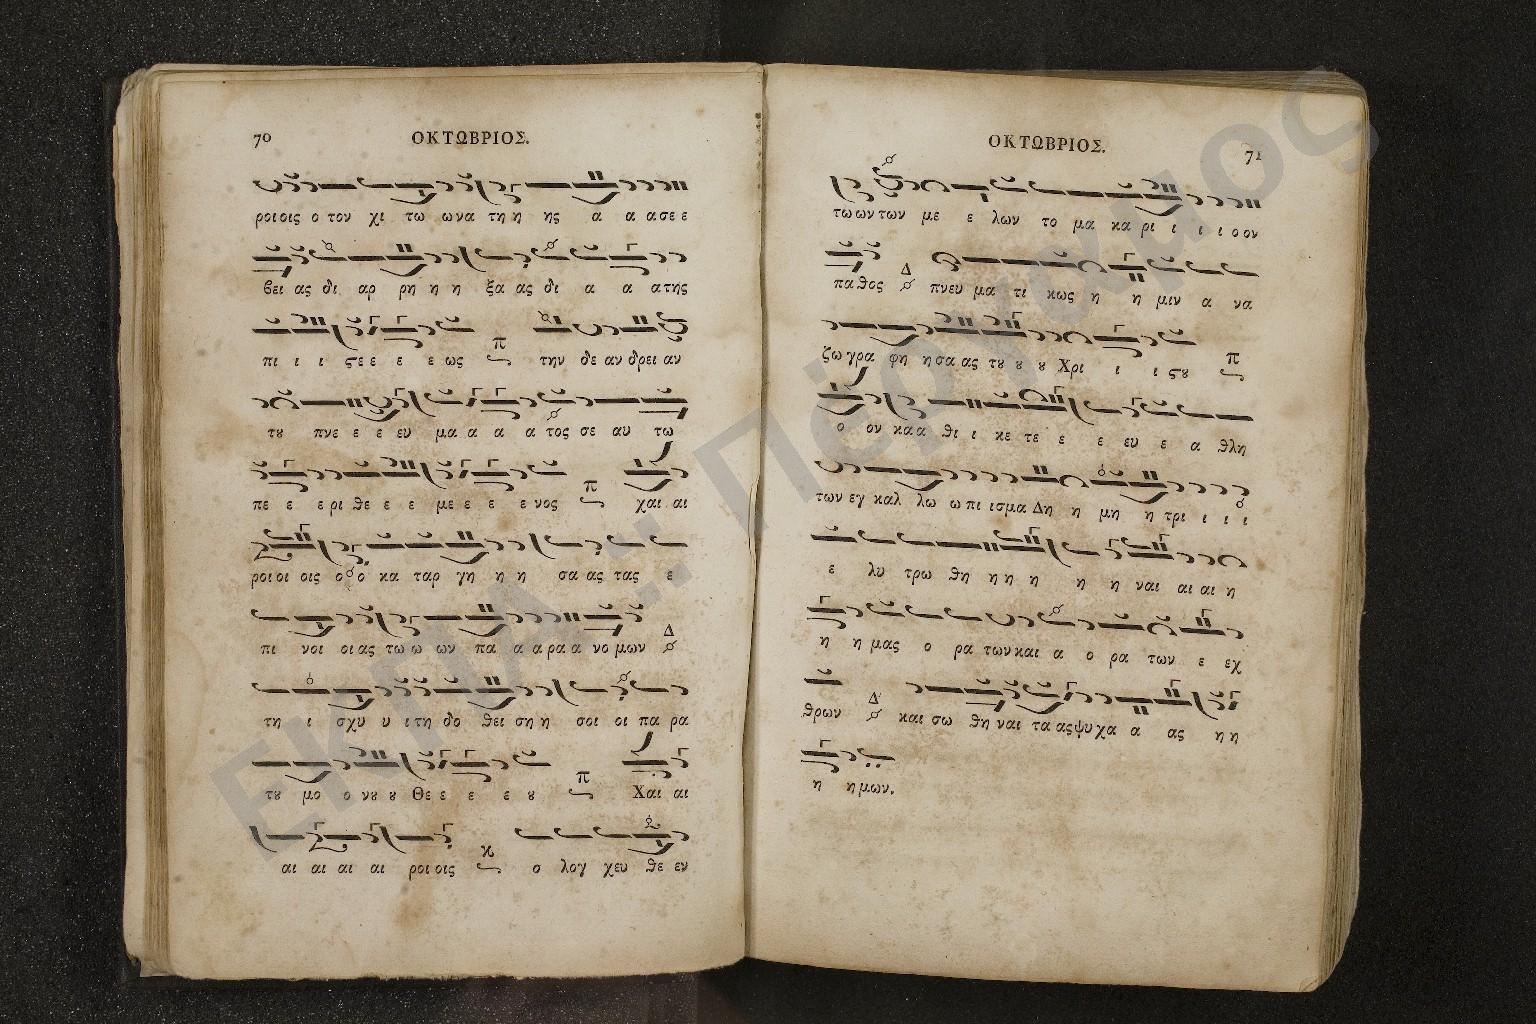 70
ΟΚΤΩΒΡΙΟΣ.
ροι οις ο τον χι τω ω να τη η ης α α α σε ε
βει ας δι αρ ρη η η ξα ας δι α α α της
πι ι ι ϛε ε ε ε ως π την δε αν δρει αν
τȣ πνε ε ε ευ μα α α α τος σε αυ τω
πε ε ε ρι θε ε ε με ε ε ε νος π χαι αι
ροι οι οις ο ο κα ταρ γη η η σα ας τας ε
πι νοι οι ας τω ω ων πα α α ρα α νο μων Δ
τη ι σχυ υ υ ι τη δο θει ση η σοι οι πα ρα
τȣ μο ο νȣ ȣ Θε ε ε ε ȣ π Χαι αι
αι αι αι αι ροι οις κ ο λογ χευ θε εν
ΟΚΤΩΒΡΙΟΣ.
71
τω ων των με ε λων το μα κα ρι ι ι ι ο ον
πα θος Δ πνευ μα τι κως η η μιν α να
ζω γρα φη η σα ας τȣ ȣ ȣ Χρι ι ι ϛȣ π
ο ον κα α θι ι κε τε ε ε ευ ε α θλη
των εγ καλ λω ω πι ισμα Δη η μη η τρι ι ι ι
ε λυ τρω θη η η η η η ναι αι αι η
η η μας ο ρα των και α ο ρα των ε εχ
θρων Δ και σω θη ναι τα ας ψυ χα α ας η η
η η μων.
ΕΚΠΑ :: Πέργαμος